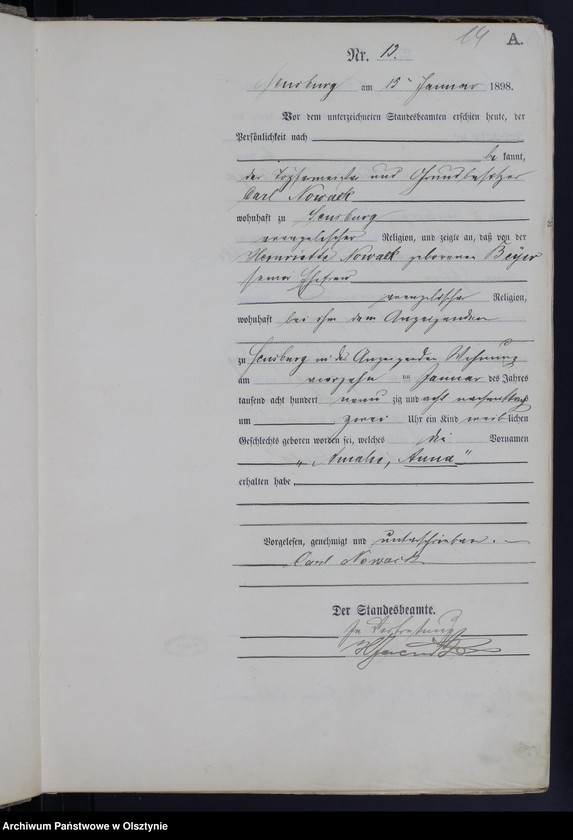 14 A.
Nr. 13.
Sensburg am 15 Januar 1898.
Vor dem unterzeichneten Standesbeamten erschien heute, der
Persönlichkeit nach
be kannt,
der Töpfermeister und Grundbesitzer
Carl Nowack
wohnhaft zu Sensburg
evangelischer Religion, und zeigte an, daß von der
Henriette Nowack geborenen Beyer
seiner Ehefrau
evangelischer Religion,
wohnhaft bei ihm dem Anzeigenden
zu Sensburg in des Anzeigenden Wohnung
am vierzehn ten Januar des Jahres
tausend acht hundert neun zig und acht nachmittags
um zwei Uhr ein Kind weiblichen
Geschlechts geboren worden sei, welches die Vornamen
"Amalie, Anna"
erhalten habe.
Vorgelesen, genehmigt und unterschrieben.
Carl Nowack
Der Standesbeamte.
In Vertretung
Archiwum Państwowe w Olsztynie